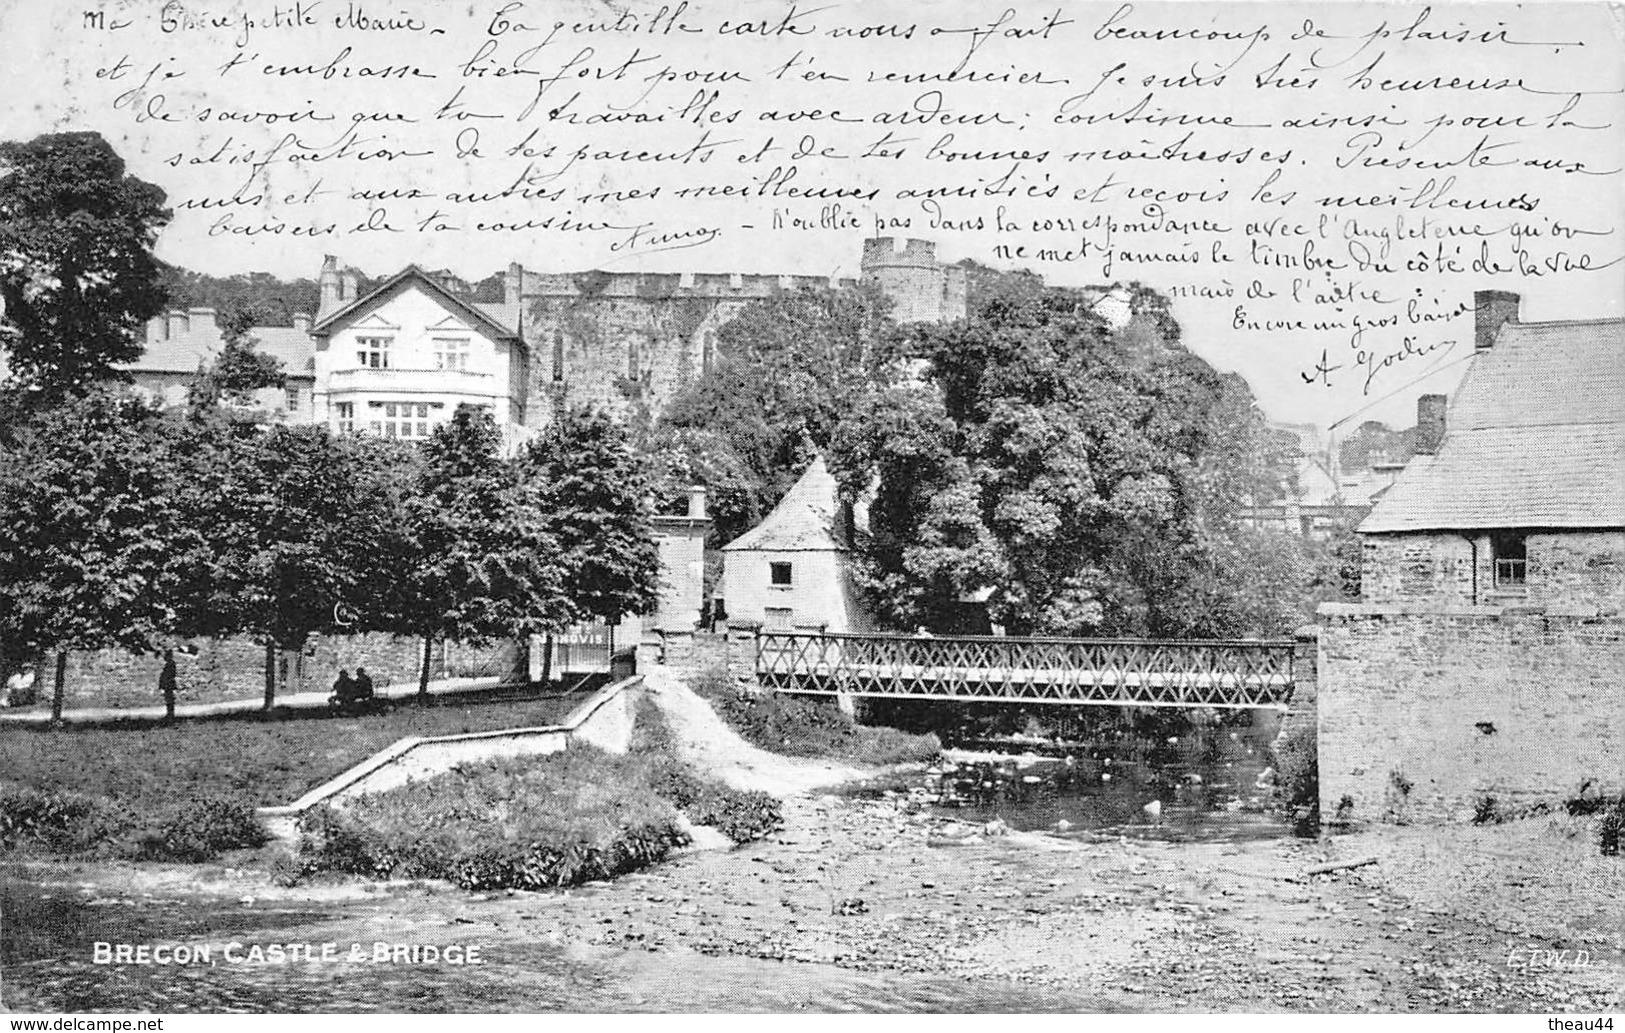 Ma Chère petite Marie - Ta gentille carte nous a fait beaucoup de plaisir
et je t'embrasse bien fort pour t'en remercier. Je suis très heureuse
de savoir que tu travailles avec ardeur; continue ainsi pour la
satisfaction de tes parents et de tes bonnes maîtresses. Présente aux
uns et aux autres mes meilleures amitiés et reçois les meilleurs
baisers de ta cousine
- N'oublie pas dans la correspondance avec l'Angleterre qu'on
ne met jamais le timbre du côté de la vue
mais de l'autre.
Encore un gros baiser
A Godin
HOVIS
BRECON, CASTLE & BRIDGE.
E.T.W.D.
theau44